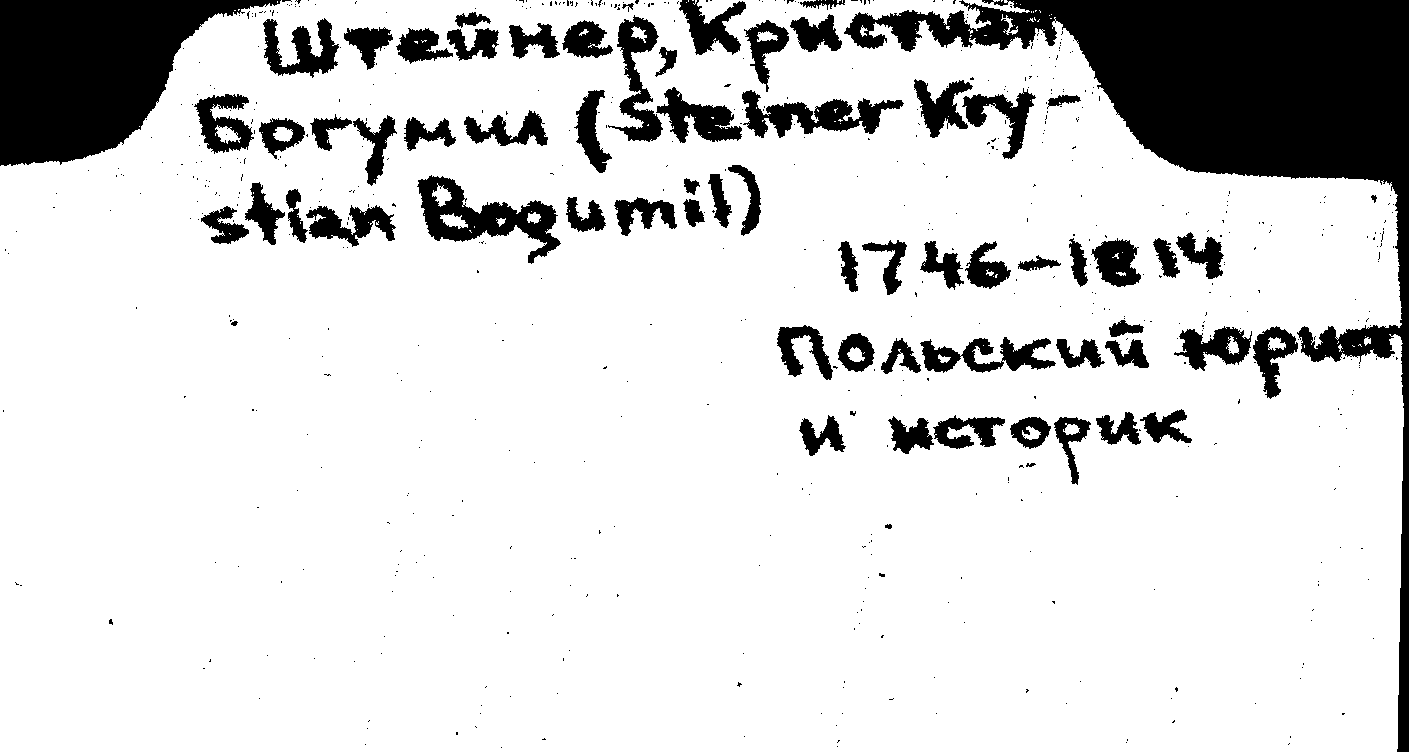 Штейнер, Кристиан
Богумил (Steiner Kry-
stian Bogumil)
1746-1814
Польский юрист
и историк